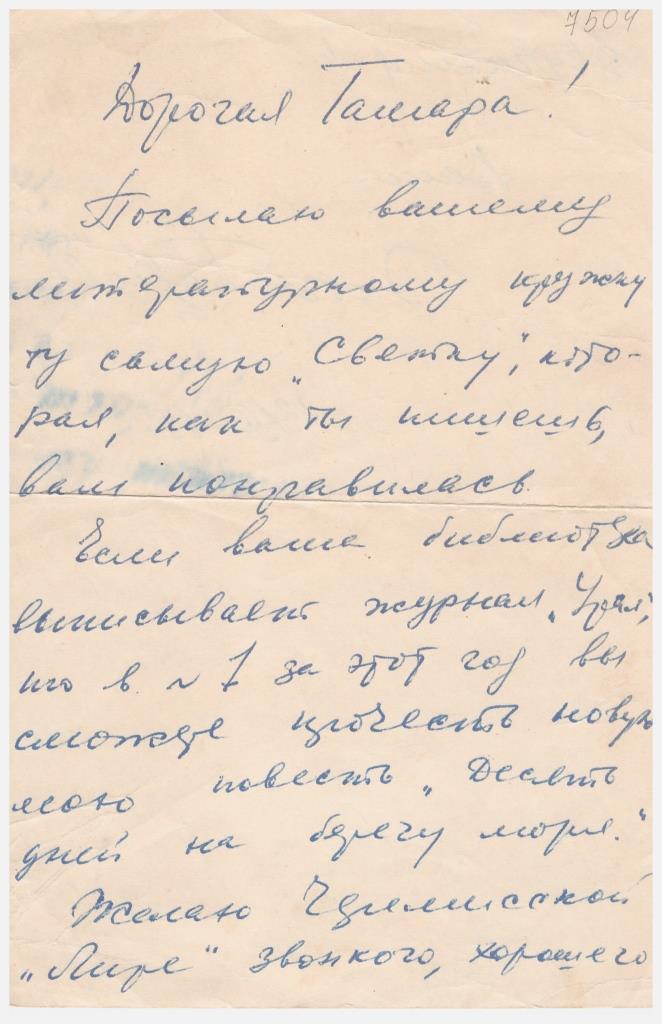 7504
Дорогая Тамара!
Посылаю вашему
литературному кружку
ту самую „Светку", кото-
рая, как ты пишешь,
вам понравилась.
Если ваша библиотека
выписывает журнал „Урал",
то в № 7 за этот год вы
сможете прочесть новую
мою повесть „Десять
дней на берегу моря."
Желаю Черемисской
„Лире" звонкого, хорошего